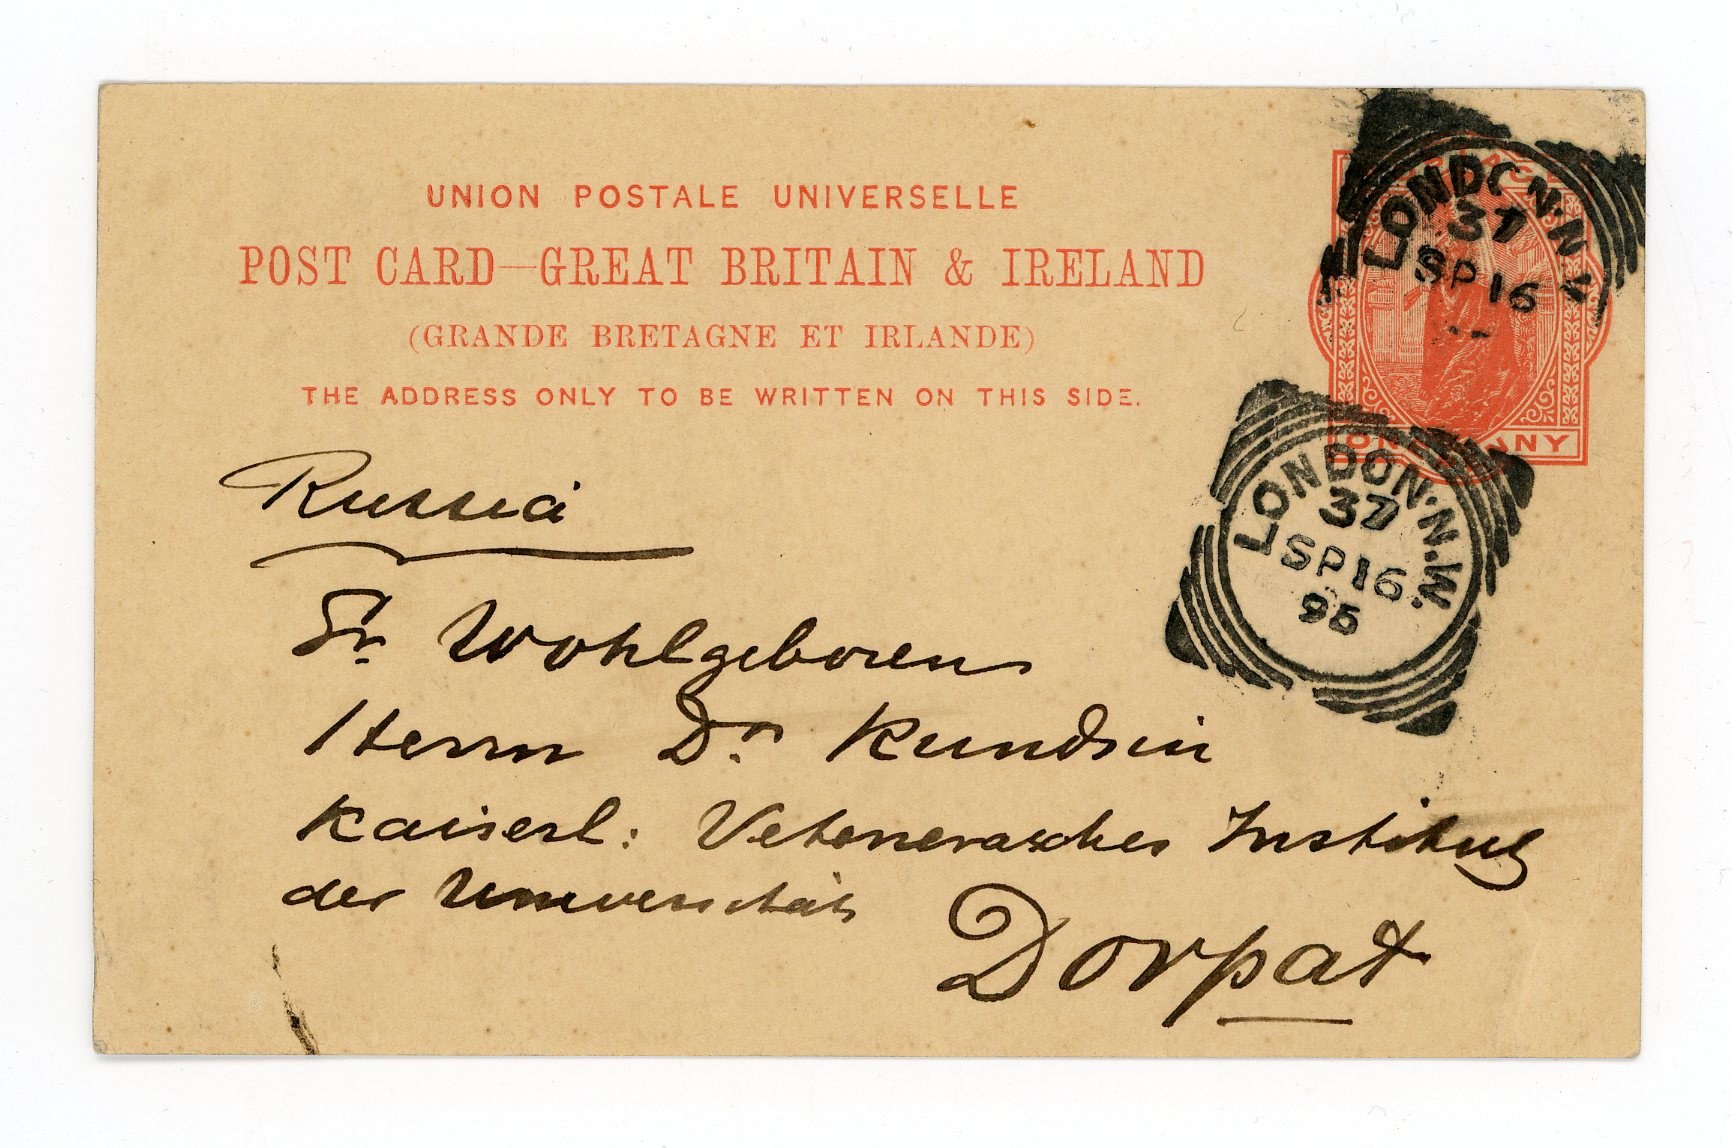 UNION POSTALE UNIVERSELLE
POST CARD—GREAT BRITAIN & IRELAND
(GRANDE BRETAGNE ET IRLANDE)
THE ADDRESS ONLY TO BE WRITTEN ON THIS SIDE.
LONDON.N.W
37
SP 16
LONDON.N.W.
37
SP 16
95
Russia
Sr. Wohlgeboren
Herrn Dr. Kundsin
Kaiserl: Institut
der Universität
Dorpat